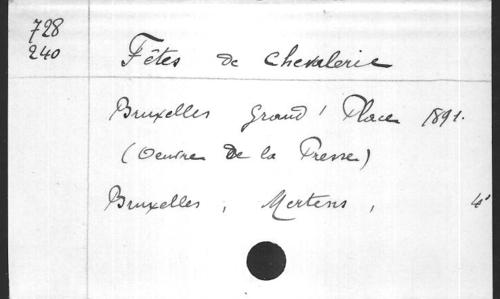 728
240
Fêtes de Chevalerie
Bruxelles Grand' Place 1891.
(Oeuvre de la Presse)
Bruxelles, Mertens, 4°